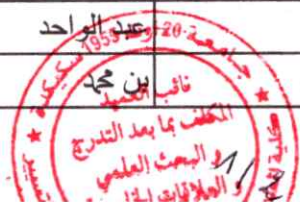 عبد الواحد
بن محمد
جامعة 20 أوت 1955 سكيكدة
نائب العميد
المكلف بما بعد التدرج
و البحث العلمي
و العلاقات